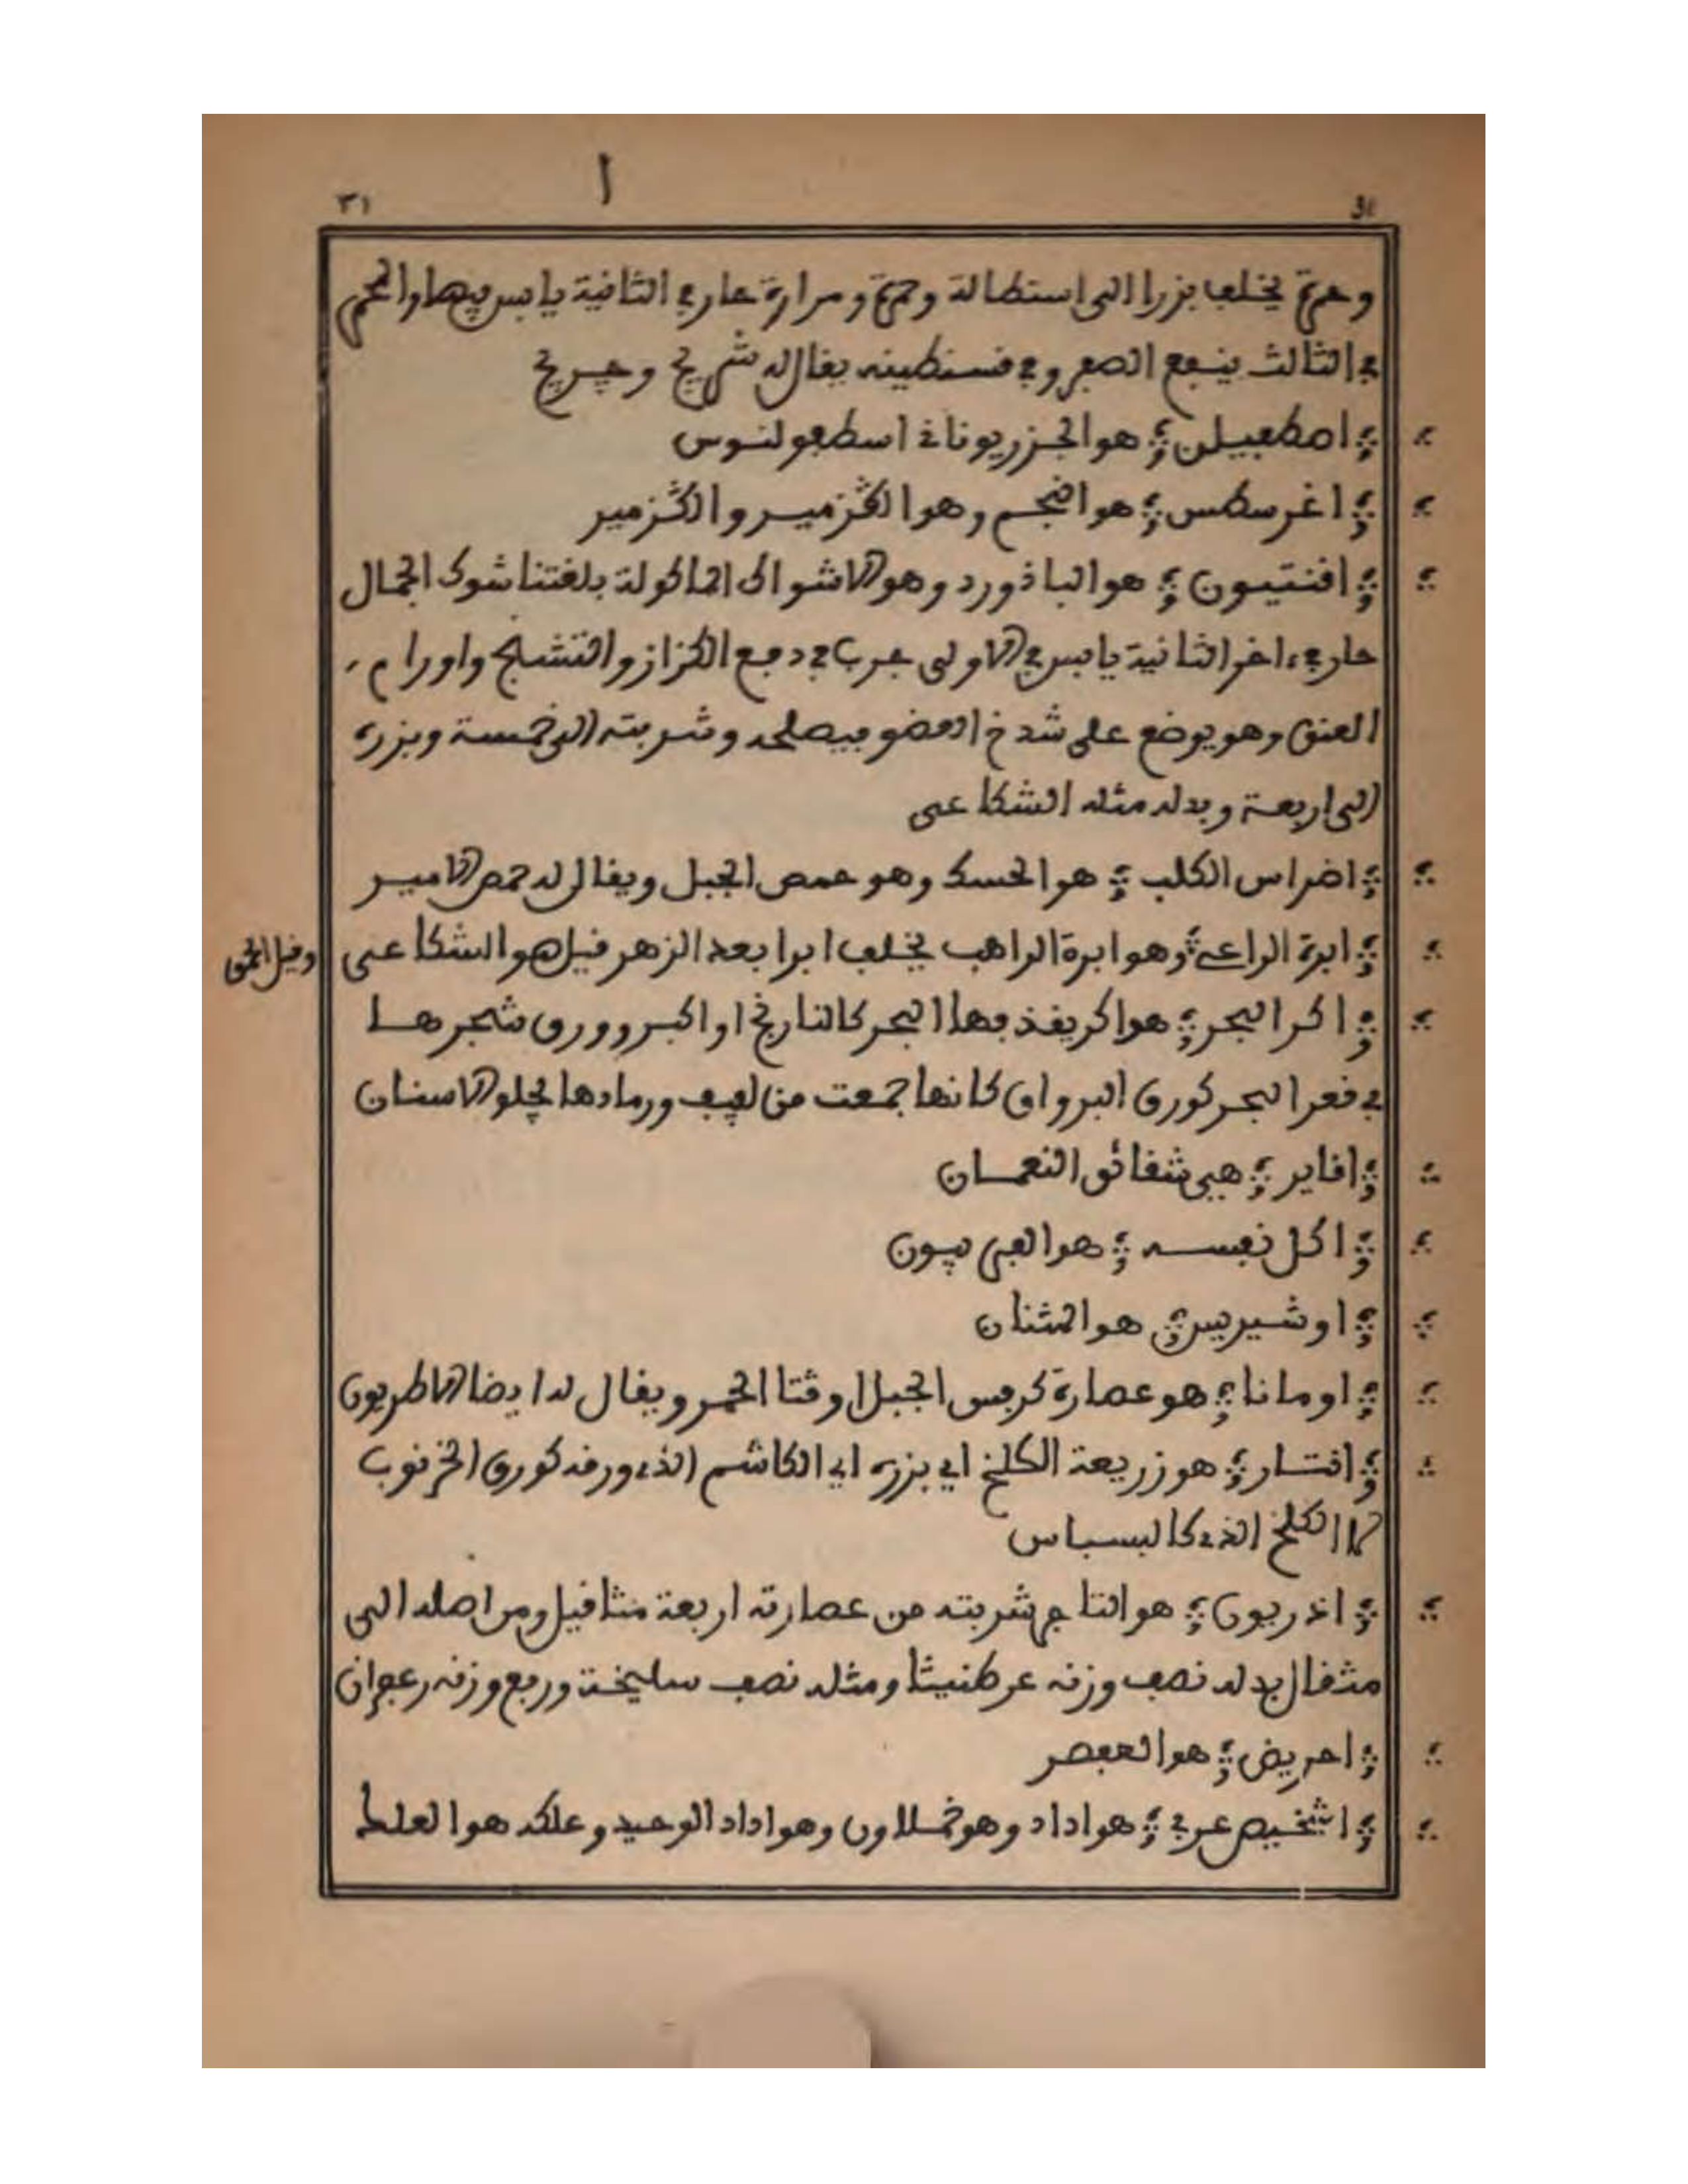 ا
٣١ 31
وحدة يخلف بزرا الى استطالة وحمرة ومرارة حار في الثانية يابس فيها او
في الثالث ينفع الصفر وفي قسنطينه يقال له شريح وجريح
امطفيلن هو الجزر يوناني اسطفولنوس
اغرسطس هو النجم وهو الڭزمير والڭزمير
افنتيون هو الباذورد وهو الاشواك الماكولة بلغتنا شوك الجمال
حار في ءاخر الثانية يابس في الاولى جرب في دفع الكزاز والتشنج واورام
العنق وهو يوضع على شدخ العضو فيصلحه وشربته الى خمسة وبزره
الى اربعة وبدله مثله الشكاعى
اضراس الكلب هو الحسك وهو حمص الجبل ويقال له حمص الامير
ابرة الراعي وهو ابرة الراهب يخلف ابرا بعد الزهر قيل هو الشكاعى
وقيل
اكر البحر هو اكر يقذفها البحر كالنارنج او اكبر وورق شجرها
في قعر البحر كورق البرواق كانها جمعت من ليف ورمادها يجلو الاسنان
اقاير هي شقائق النعمان
اكل نفسه هو الفربيون
اوشيريس هو المثنان
اومانا هو عصارة كرفس الجبل او قثا الحمر ويقال له ايضا الاطريون
افتسار هو زريعة الكلخ اي بزره اي الكاشم الذي ورقه كورق الخرنوب
لا الكلخ الذي كالبسباس
اذريون هو شربته من عصارته اربعة مثاقيل ومن اصله الى
مثقال بدله نصف وزنه عرطنيثا ومثله نصف سليخة وربع وزنه زعفران
احريض هو العصفر
اشخيص عربي هو اداد وهو خملالون وهو اداد الوحيد وعلكه هو العلط